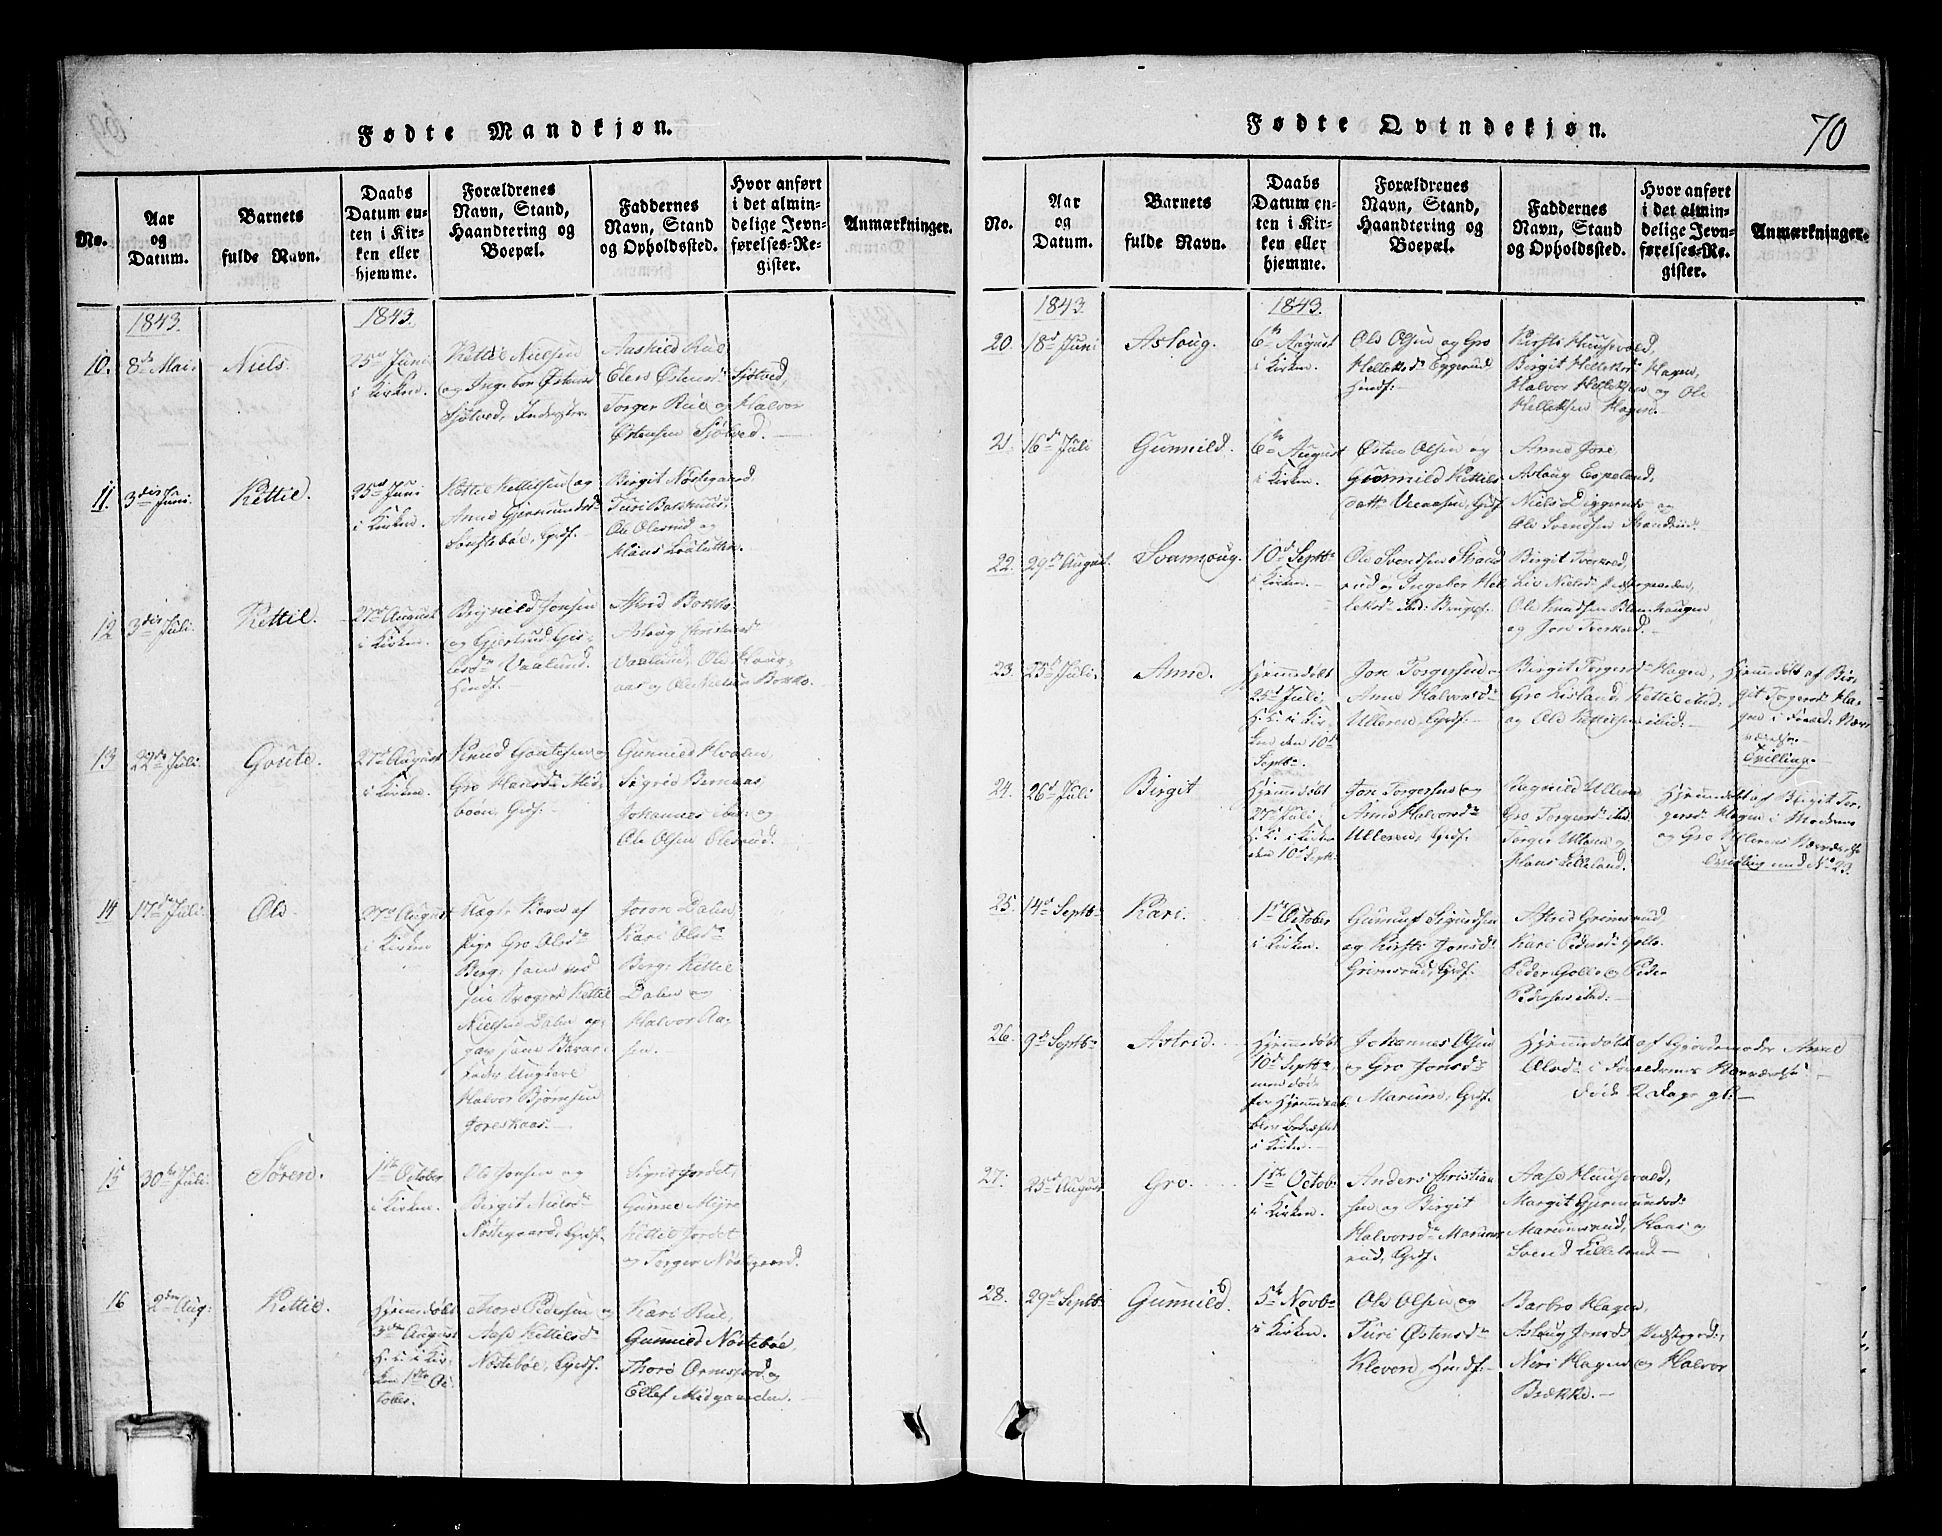 Fødte Mandkjøn.
No.
Aar
og
Datum.
Barnets
fulde Navn.
Daabs
Datum en-
ten i Kir-
ken eller
hjemme.
Forældrenes
Navn, Stand,
Haandtering og
Boepæl.
Faddernes
Navn, Stand
og Opholdssted.
Hvor anført
i det almin-
delige Jevn-
førelses-Re-
gister.
Anmærkninger.
1843.
1843.
10.
8de Mai
Niels.
25de Juni
i Kirken.
Kettil Nielsen
og Ingebor Østensd
Sjøtved,
Aaskild Rue
Elen Østensd: Sjøtved,
Torger Rue og Halvor
Østensen Sjøtved.
11.
3die Juni.
Kettil.
25de Juni
i Kirken.
Kettil Kettilsen og
Anne Gjermundsd
Sønstebøe, Grdf.
Birgit Nøstegaard
Turi
Ole Olesrud og
Hans
12
3die Juli.
Kettil.
27de August
i Kirken.
Brynild Jonsen
og Gjertrud
Vaalund.
Hmdf.
Astrid Bakko
Aslaug
Vaalund, Ole
og Ole Nielsen Bakko.
13
22de Juli.
Goute.
27de August
i Kirken.
Knud Goutesen og
Gro Hansdr Mid-
bøen, Grdf.
Gunnild
Sigrid Bernaas,
Johannes ibid: og
Ole Olsen Olesrud.
14
17de Juli.
Ole.
27de August
i Kirken
Uægte Barn af
Pige Gro Olsdr
Berg; som
sin Svoger Kettil
Nielsen Dalen op-
gav som Barne-
fader Ungkarl
Halvor Bjørnsen
Joron Dalen
Kari Olsdr
Berg; Kettil
Dalen og
Halvor Aa-
sen.
15
30te Juli.
Sören.
1ste October
i Kirken.
Ole Jonsen og
Birgit Nielsdr
Nøstegaard, Grdf.
Sigrid Jordet,
Gunne
Kettil Jordet
og Torger Nøstegaard.
16
2den Aug:
Kettil.
Hjemmedøbt
3de August
i Kir-
ken 1ste Oc-
tober.
Thore Pedersen og
Aase Kettilsdr
Nøstebøe, Grdf.
Kari Rue,
Gunnild Nøstebøe,
Thore og
Ellef Midgaarden.
Fødte Qvindekjøn.
70
No.
Aar
og
Datum.
Barnets
fulde Navn.
Daabs
Datum en-
ten i Kir-
ken eller
hjemme.
Forældrenes
Navn, Stand,
Haandtering og
Boepæl.
Faddernes
Navn, Stand
og Opholdssted.
Hvor anført
i det almin-
delige Jevn-
førelses-Re-
gister.
Anmærkninger.
1843.
1843.
20.
18de Juni
Aslaug.
6te August
i Kirken.
Ole Olsen og Gro
Helleksdr Eggerud
Hmdf:
Kirsti
Birgit Helleksd: Hagen,
Halvor Helleksen og Ole
Helleksen Hagen.
21.
16de Juli
Gunnild.
6te August
i Kirken.
Østen Olsen og
Gunnild Kettils-
datt: Veaasen, Grdf
Anne Jore
Aslaug Espeland,
Niels og
Ole Svendsen Strandrud.
22.
29de August.
Svanaug.
10de Septbr
i Kirken.
Ole Svendsen Strand-
rud og Ingebor Hel-
leksdr ibid:
Birgit Tverald,
Liv Nielsd: Prestegaarden,
Ole Knudsen
og Jon Tverald.
23.
25de Juli.
Anne.
Hjemmedøbt
25de Juli.
i Kir-
ken den 10de
Septbr.
Jon Torgersen
Anne Halvorsdr
Ulleren, Grdf.
Birgit Torgersdr Hagen,
Gro Lisland, Kettil ibid:
og Ole Kettilsen ibid:
Hjemmedøbt af Bir-
git Torgersd: Ha-
gen i Foræld: Nær-
værelse.
Tvilling.
24.
26de Juli
Birgit
Hjemmedøbt
27de Juli.
i Kirken
den 10de Septbr.
Jon Torgersen og
Anne Halvorsdr
Ulleren, Grdf.
Ragnild Ulleren
Gro Torgersd: ibid.
Torger Ulleren og
Hans Lilleland.
Hjemmedøbt af Birgit Tor-
gersd: Hagen i Moderens
og Gro Ullerens Nærværelse
Tvilling med No 23.
25.
14de Septbr
Kari.
1ste October
i Kirken.
Gunnuf Sigurdsen
og Kirsti Jonsdr
Grimsrud, Grdf.
Astrid Grimsrud
Kari Pedersd: Golle
Peder Golle og Peder
Pedersen ibid:
26.
9de Septbr
Astrid.
Hjemmedøbt
10de Septbr,
men døde
før Hjemmedaa-
ben bekræftet
i Kirken.
Johannes Olsen
og Gro Jonsdr
Marum, Grdf.
Hjemmedøbt af Gjordemoder Anne
Olsdr i Forældrenes Nærværelse
Døde 2 Dage gl.
27.
25de August
Gro.
1ste Octob:
i Kirken.
Anders Christian-
sen og Birgit
Halvorsdr Marums-
rud, Grdf.
Aase
Margit Gjermundsd:
Marumsrud, Hans og
Svend Lilleland
28.
29de Septbr
Gunnild.
5te Novbr
i Kirken.
Ole Olsen og
Turi Østensdr
Kleven, Hmdf.
Barbro Hagen,
Aslaug Jonsd: Prestegrd:,
Neri Hagen og Halvor
Brække.